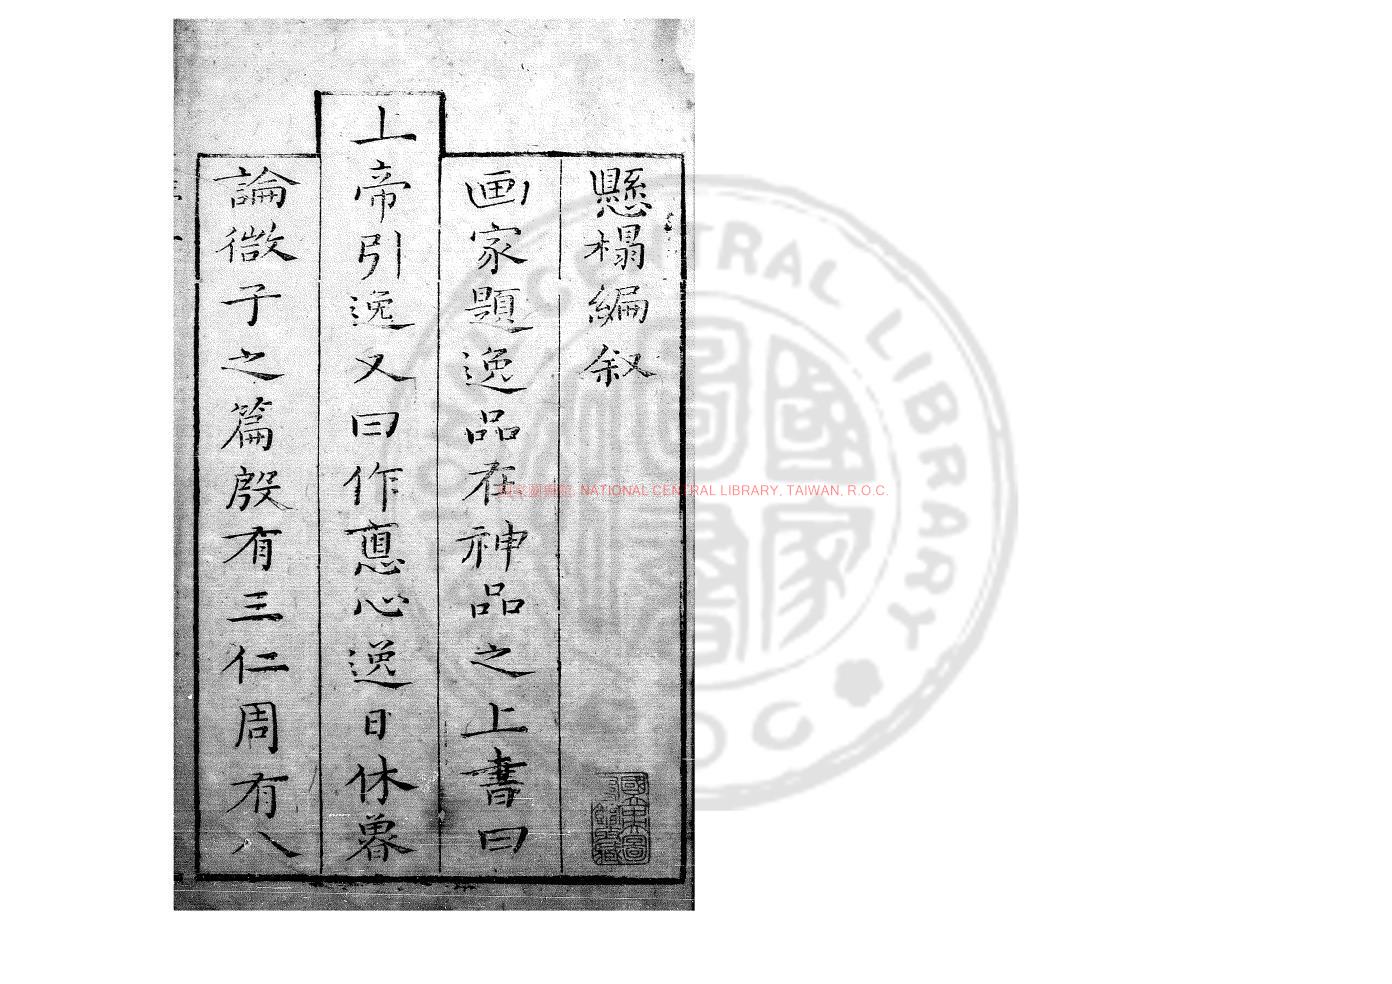 懸榻編叙
画家題逸品在神品之上書曰
上帝引逸又曰作悳心逸日休魯
論微子之篇殷有三仁周有八
國家圖書館 NATIONAL CENTRAL LIBRARY, TAIWAN, R.O.C.
CENTRAL LIBRARY